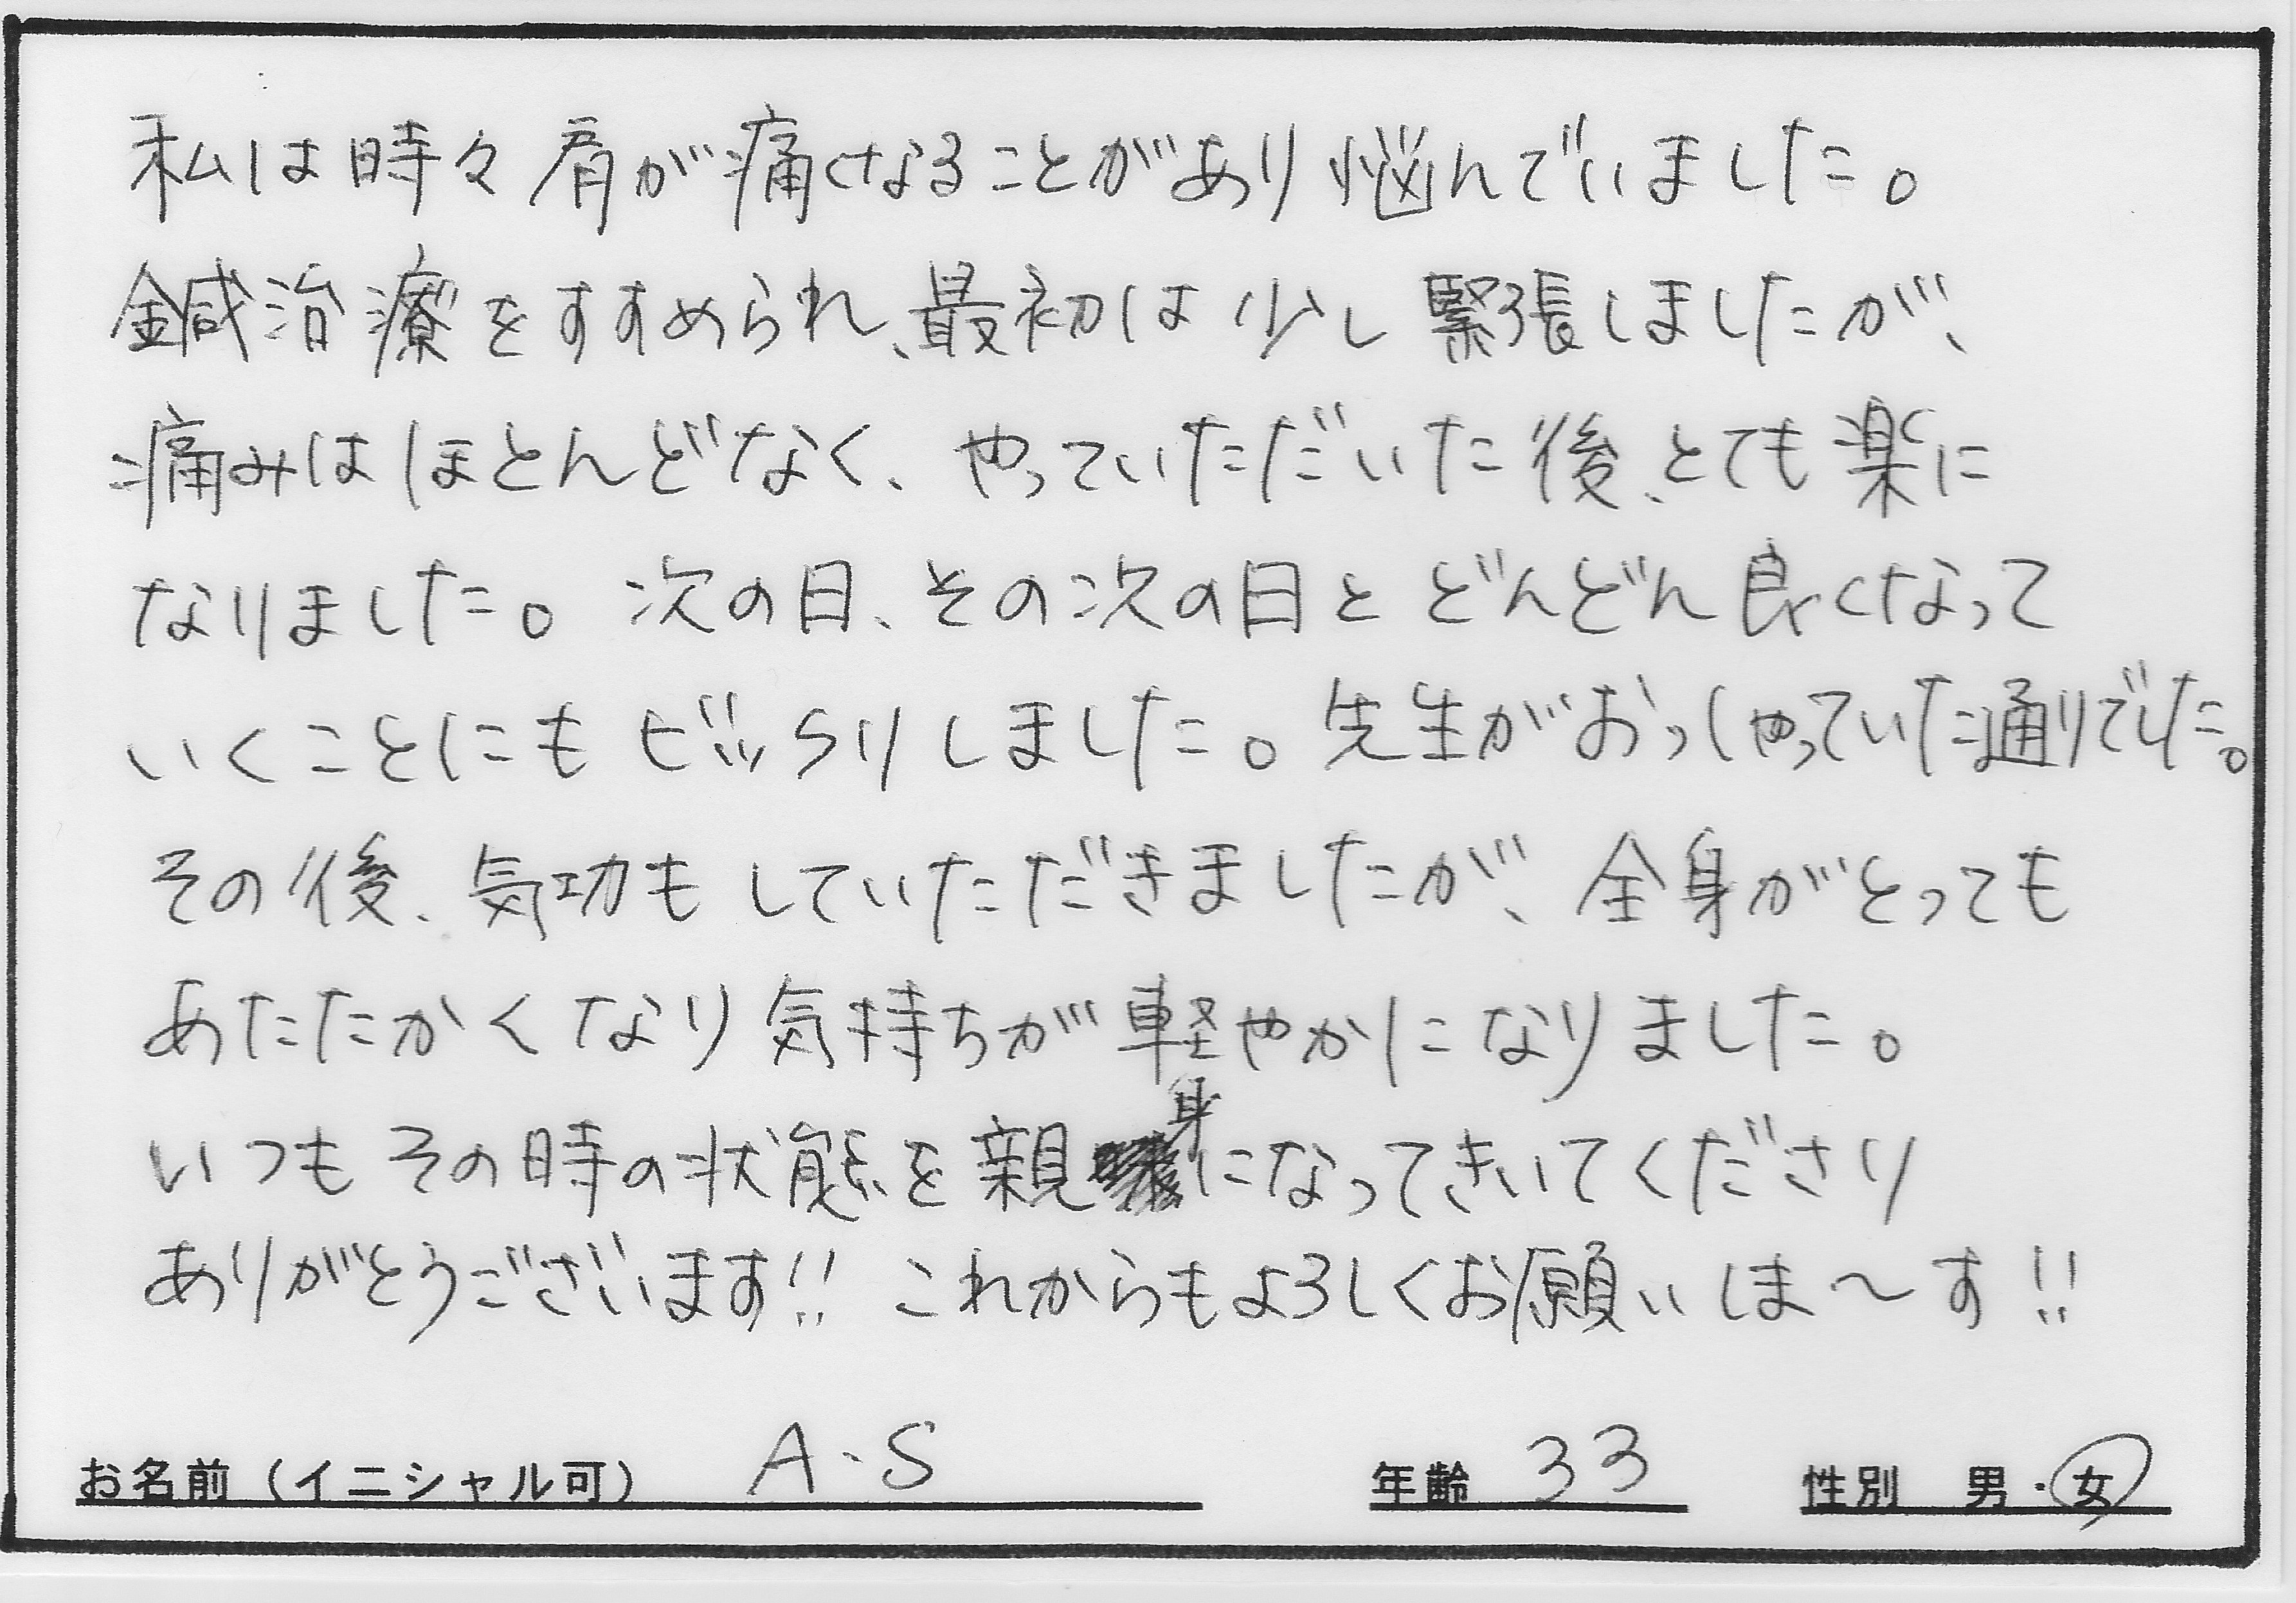 私は時々肩が痛くなることがあり悩んでいました。
鍼治療をすすめられ、最初は少し緊張しましたが、
痛みはほとんどなく、やっていただいた後、とても楽に
なりました。次の日、その次の日とどんどん良くなって
いくことにもビックリしました。先生がおっしゃっていた通りでした。
その後、気功もしていただきましたが、全身がとっても
あたたかくなり気持ちが軽やかになりました。
いつもその時の状態を親身になってきいてくださり
ありがとうございます!! これからもよろしくお願いしま〜す!!
お名前(イニシャル可) A・S 年齢 33 性別 男・女